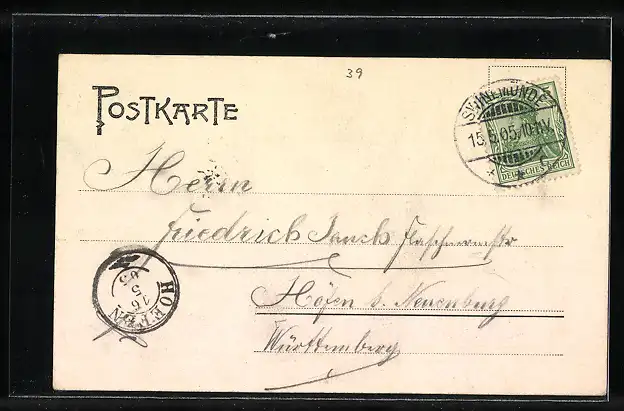 39
POSTKARTE
SWINEMÜNDE
15.5.05.10-11N.
DEUTSCHES REICH
Herrn
Friedrich Jauch
Höfen b. Neuenburg
Württemberg
HOEFEN
16
5
05